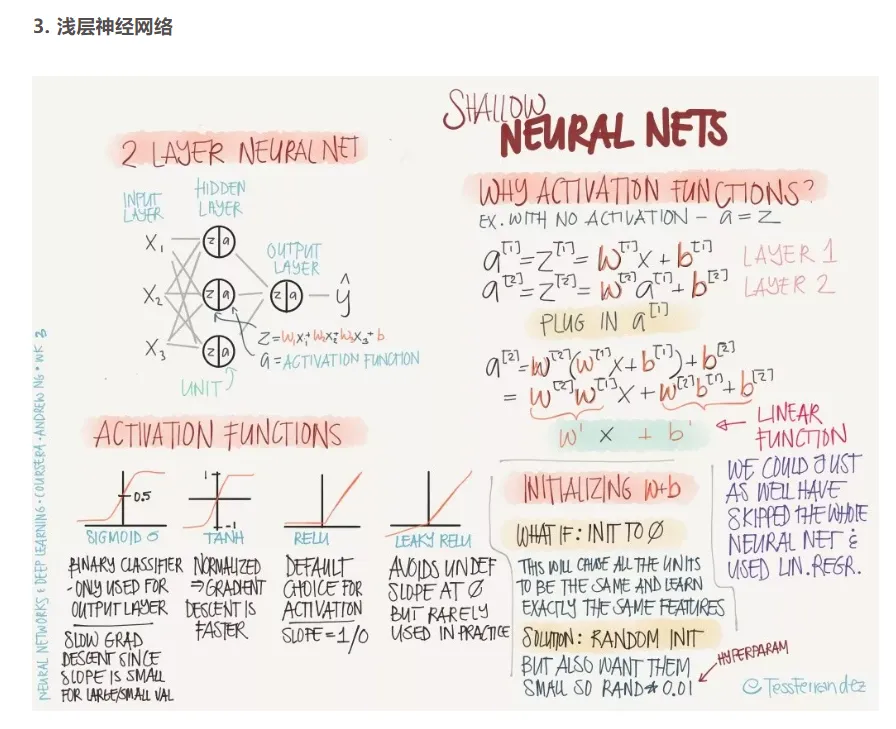 3. 浅层神经网络
SHALLOW
NEURAL NETS
2 LAYER NEURAL NET
INPUT
LAYER
HIDDEN
LAYER
OUTPUT
LAYER
X₁
X₂
X₃
z|a
z|a
z|a
z|a
ŷ
Z=W₁X₁+W₂X₂+W₃X₃+b
a=ACTIVATION FUNCTION
UNIT
ACTIVATION FUNCTIONS
0.5
SIGMOID σ
BINARY CLASSIFIER
- ONLY USED FOR
OUTPUT LAYER
SLOW GRAD
DESCENT SINCE
SLOPE IS SMALL
FOR LARGE/SMALL VAL
1
-1
TANH
NORMALIZED
⇒GRADIENT
DESCENT IS
FASTER
RELU
DEFAULT
CHOICE FOR
ACTIVATION
SLOPE=1/0
LEAKY RELU
AVOIDS UNDEF
SLOPE AT Ø
BUT RARELY
USED IN PRACTICE
WHY ACTIVATION FUNCTIONS?
EX. WITH NO ACTIVATION – a=z
a[1]=z[1]=W[1]X+b[1] LAYER 1
a[2]=z[2]=W[2]a[1]+b[2] LAYER 2
PLUG IN a[1]
a[2]=W[2](W[1]X+b[1])+b[2]
=W[2]W[1]X+W[2]b[1]+b[2]
W' X + b'
LINEAR
FUNCTION
WE COULD JUST
AS WELL HAVE
SKIPPED THE WHOLE
NEURAL NET &
USED LIN.REGR.
INITIALIZING W+b
WHAT IF: INIT TO Ø
THIS WILL CAUSE ALL THE UNITS
TO BE THE SAME AND LEARN
EXACTLY THE SAME FEATURES
SOLUTION: RANDOM INIT
BUT ALSO WANT THEM
SMALL SO RAND*0.01
HYPERPARAM
@TessFerrandez
NEURAL NETWORKS & DEEP LEARNING • COURSERA • ANDREW NG • WK 3